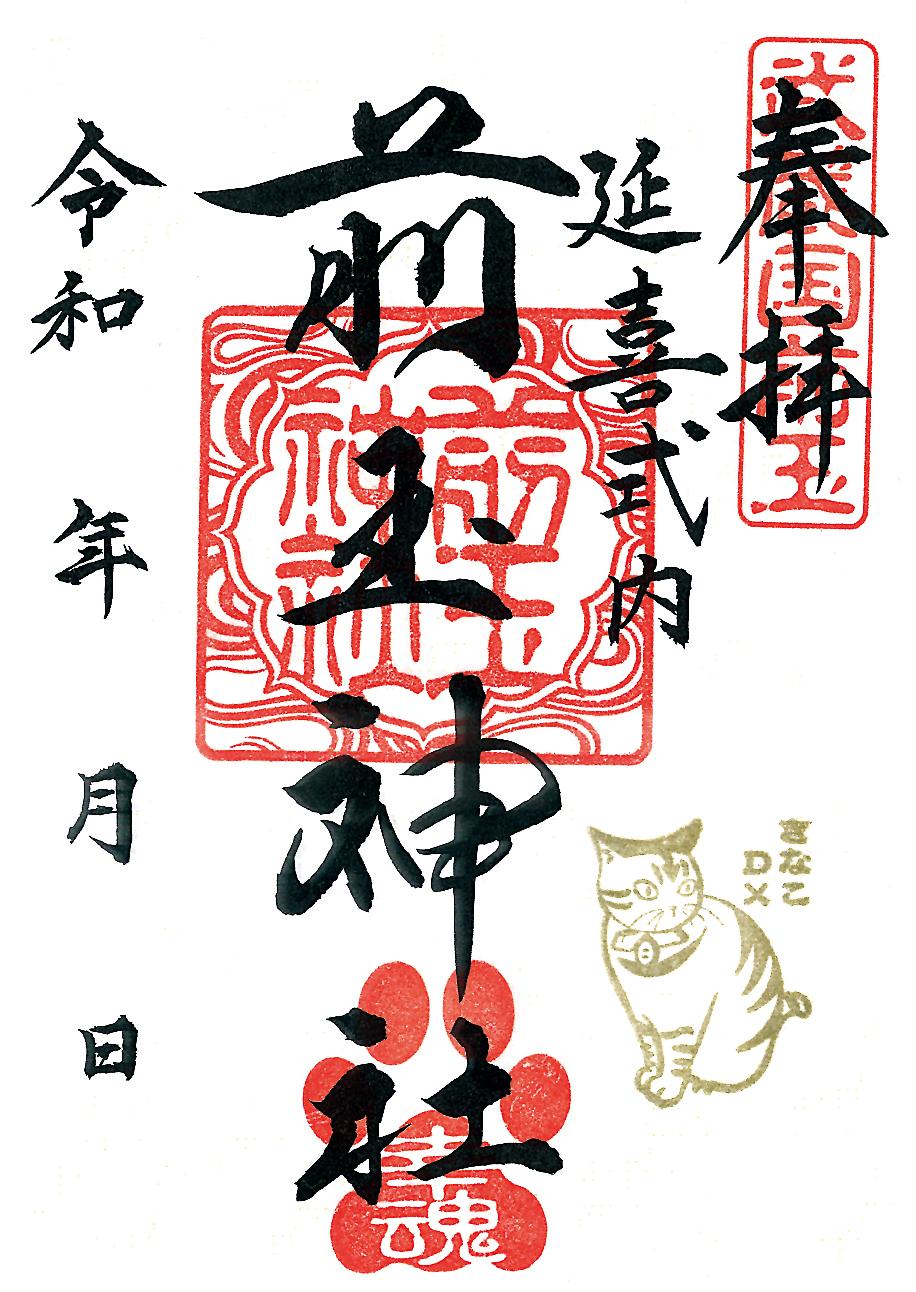 奉拝
武蔵国埼玉
延喜式内
前玉神社
前玉
神社
幸魂
きなこ
DX
令和 年 月 日